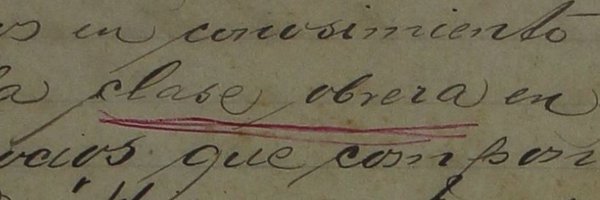 os en conosimiento
la clase obrera en
ocios que compon